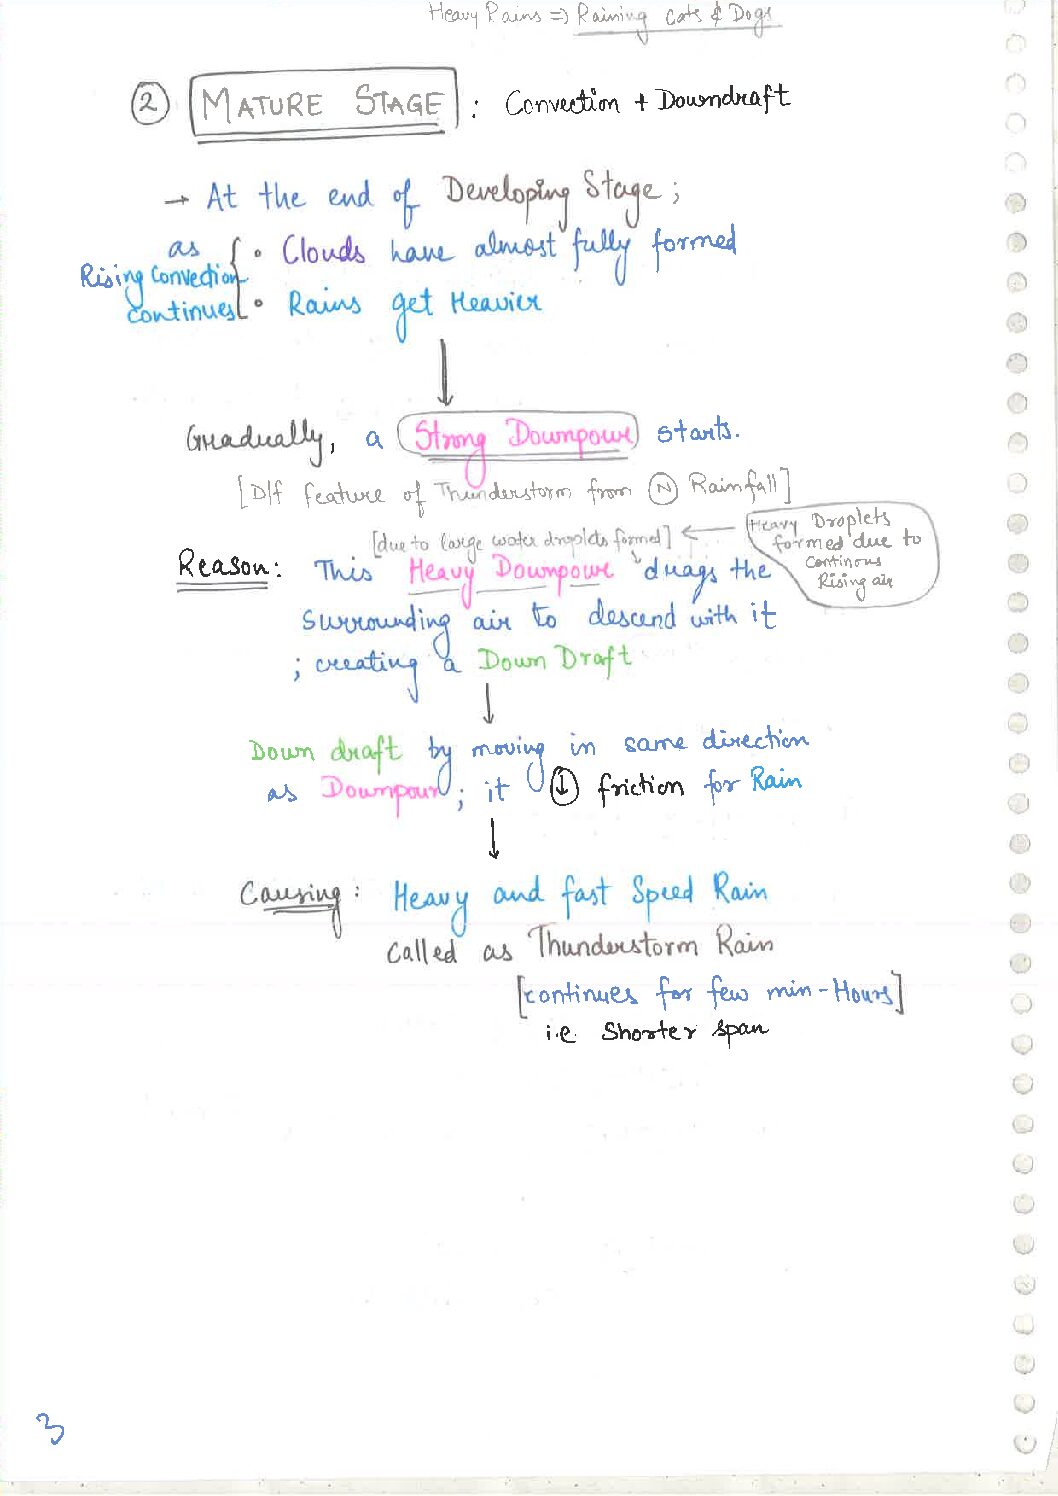 Heavy Rains => Raining Cats & Dogs
② MATURE STAGE : Convection + Downdraft
→ At the end of Developing Stage ;
as
Rising Convection
continues
• Clouds have almost fully formed
• Rains get Heavier
↓
Gradually, a Strong Downpour starts.
[D/f feature of Thunderstorm from Ⓝ Rainfall]
[due to large water droplets formed] ←
Heavy Droplets
formed due to
Continous
Rising air
Reason : This Heavy Downpour drags the
surrounding air to descend with it
; creating a Down Draft
↓
Down draft by moving in same direction
as Downpour ; it ↓ friction for Rain
↓
Causing : Heavy and fast Speed Rain
called as Thunderstorm Rain
[continues for few min-Hours]
i.e. Shorter span
3